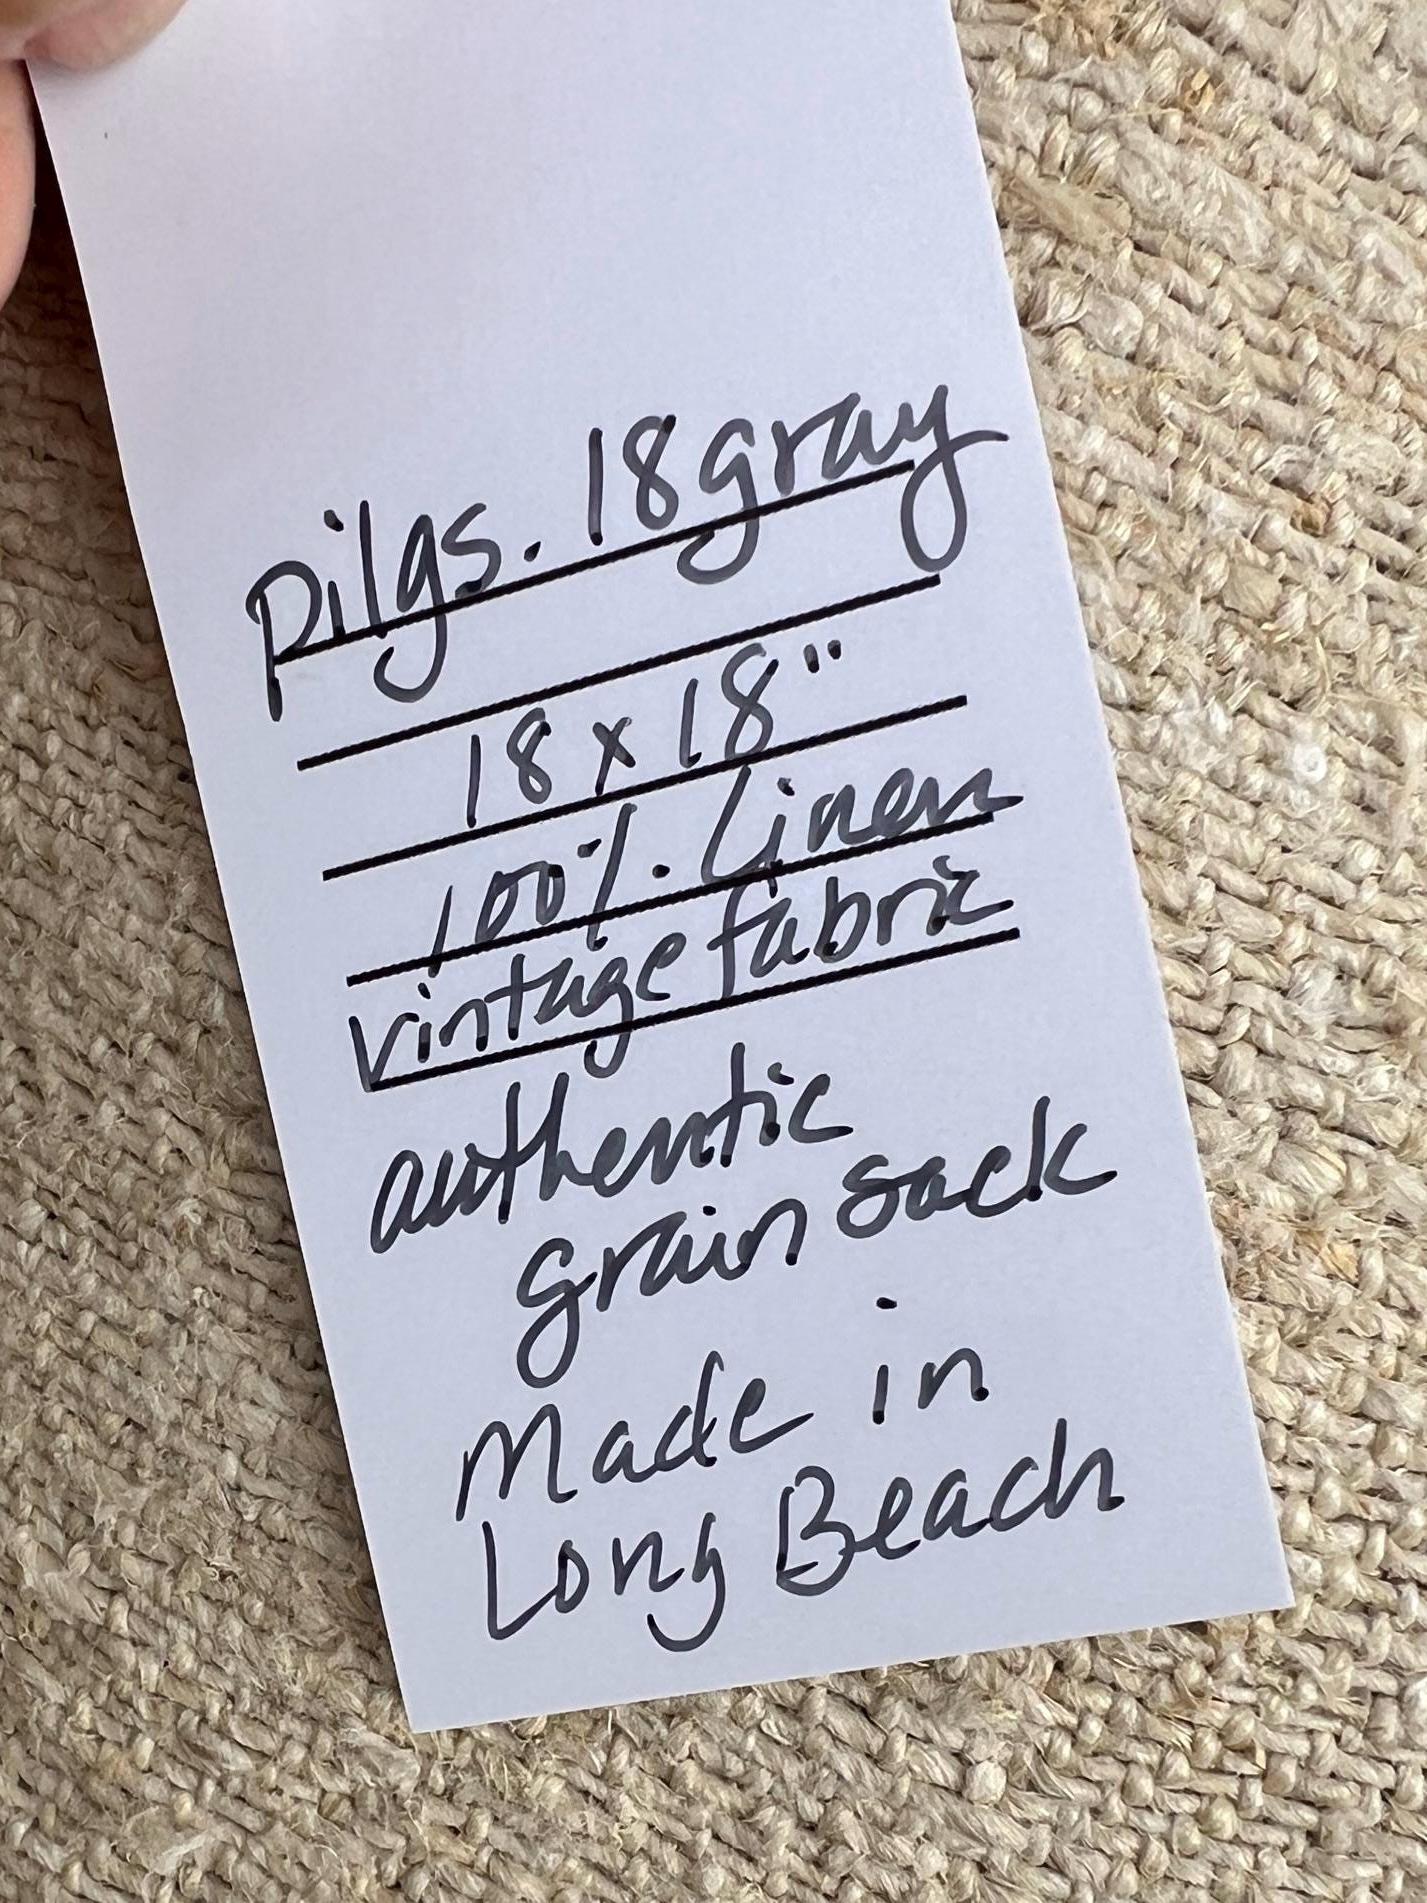 pilgs. 18gray
18 x 18"
100%. Linen
vintage fabric
authentic
grain sack
Made in
Long Beach